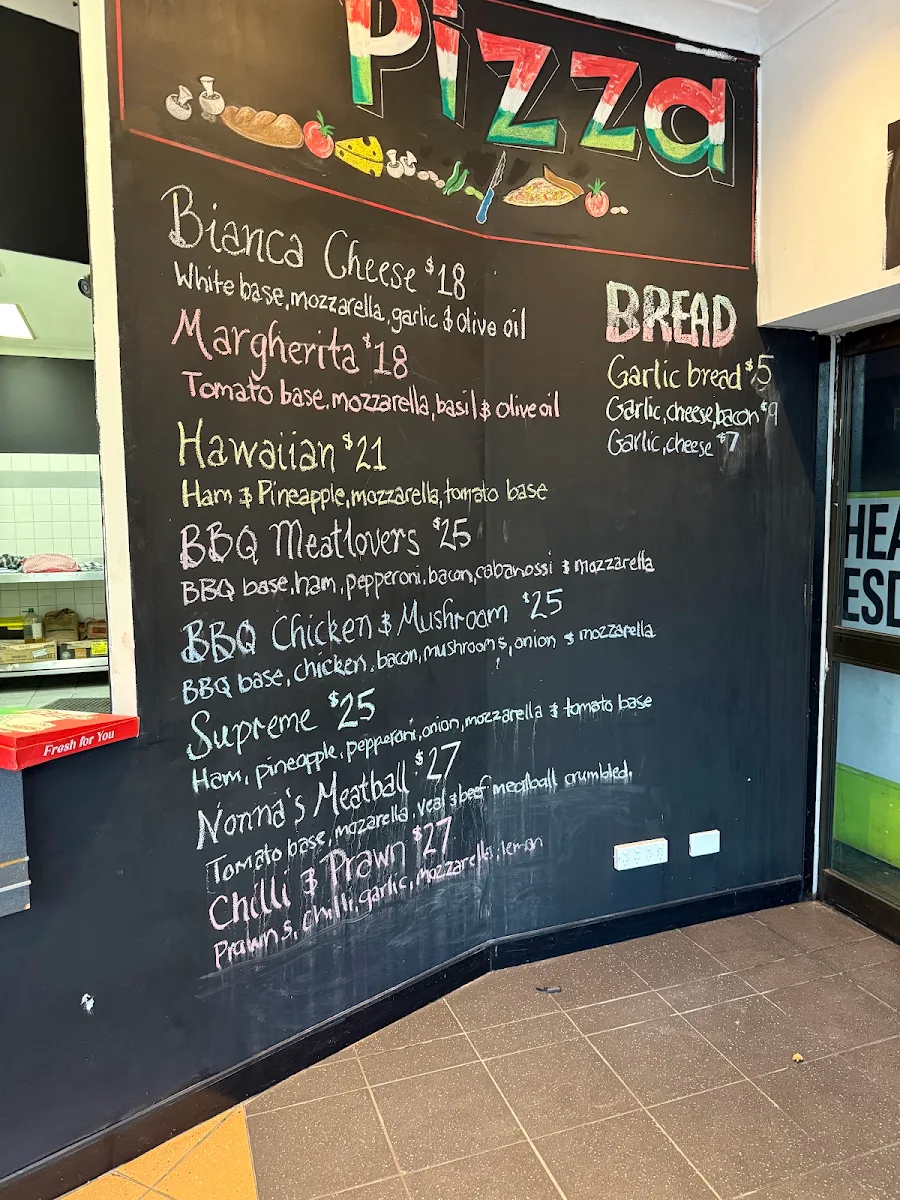 Pizza
Bianca Cheese $18
White base, mozzarella, garlic & olive oil
Margherita $18
Tomato base, mozzarella, basil & olive oil
Hawaiian $21
Ham & Pineapple, mozzarella, tomato base
BBQ Meatlovers $25
BBQ base, ham, pepperoni, bacon, cabanossi & mozzarella
BBQ Chicken & Mushroom $25
BBQ base, chicken, bacon, mushrooms, onion & mozzarella
Supreme $25
Ham, pineapple, pepperoni, onion, mozzarella & tomato base
Nonna's Meatball $27
Tomato base, mozarella, veal & beef meatball crumbled.
Chilli & Prawn $27
Prawns, chilli, garlic, mozzarella, lemon
BREAD
Garlic bread $5
Garlic, cheese, bacon $9
Garlic, cheese $7
Fresh for You
HEA
ESD